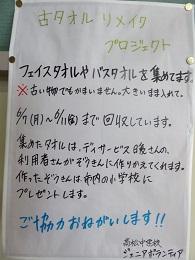 古タオル リメイク
プロジェクト
フェイスタオルやバスタオルを集めてます。
※古い物でもかまいません。大きいまま入れて。
6/7(月)〜6/11(金)まで回収しています。
集めたタオルは、デイサービス日後さんの、
利用者さんがぞうきんに作りかえてくれます。
作ったぞうきんは市内の小学校に
プレゼントします。
ご協力おねがいします!!
高松中学校
ジュニアボランティア